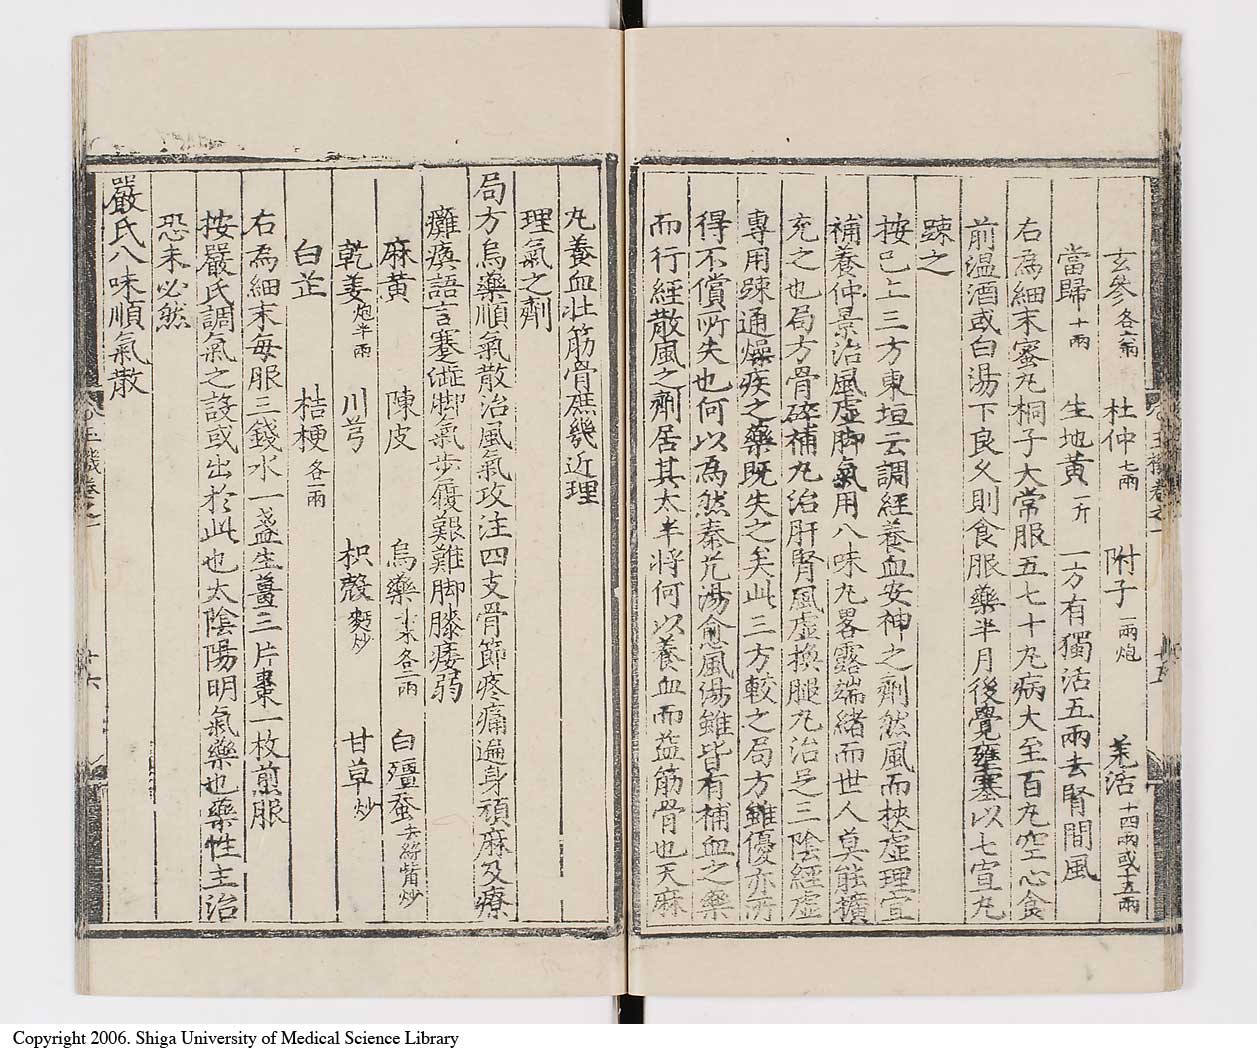 玄參各六兩 杜仲七兩 附子一兩炮 羌活十四兩或十五兩
當歸十兩 生地黃一斤 一方有獨活五兩去腎間風
右為細末蜜丸桐子大常服五七十丸病大至百丸空心食
前温酒或白湯下良久則食服藥半月後覺壅塞以七宣丸
踈之
按已上三方東垣云調經養血安神之劑然風而挾虛理宜
補養仲景治風虛脚氣用八味丸畧露端緒而世人莫能擴
充之也局方骨碎補丸治肝腎風虛換腿丸治足三陰經虛
專用踈通燥疾之藥既失之矣此三方較之局方雖優亦所
得不償所失也何以為然秦艽湯愈風湯雖皆有補血之藥
而行經散風之劑居其太半將何以養血而益筋骨也天麻
丸養血壯筋骨庶幾近理
理氣之劑
局方烏藥順氣散治風氣攻注四支骨節疼痛遍身頑麻及療
癱瘓語言蹇澁脚氣步履艱難脚膝痿弱
麻黃 陳皮 烏藥各二兩 白殭蚕去絲嘴炒
乾姜炮半兩 川芎 枳殼麩炒 甘草炒
白芷 桔梗各一兩
右為細末每服三錢水一盞生薑三片棗一枚煎服
按嚴氏調氣之說或出於此也太陰陽明氣藥也藥性主治
恐未必然
嚴氏八味順氣散
十六
Copyright 2006. Shiga University of Medical Science Library